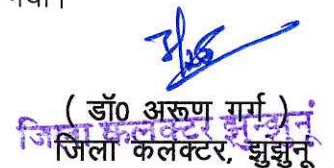 ( डॉ0 अरूण गर्ग )
जिला कलेक्टर झुन्झुनूं
जिला कलक्टर, झुझुनू